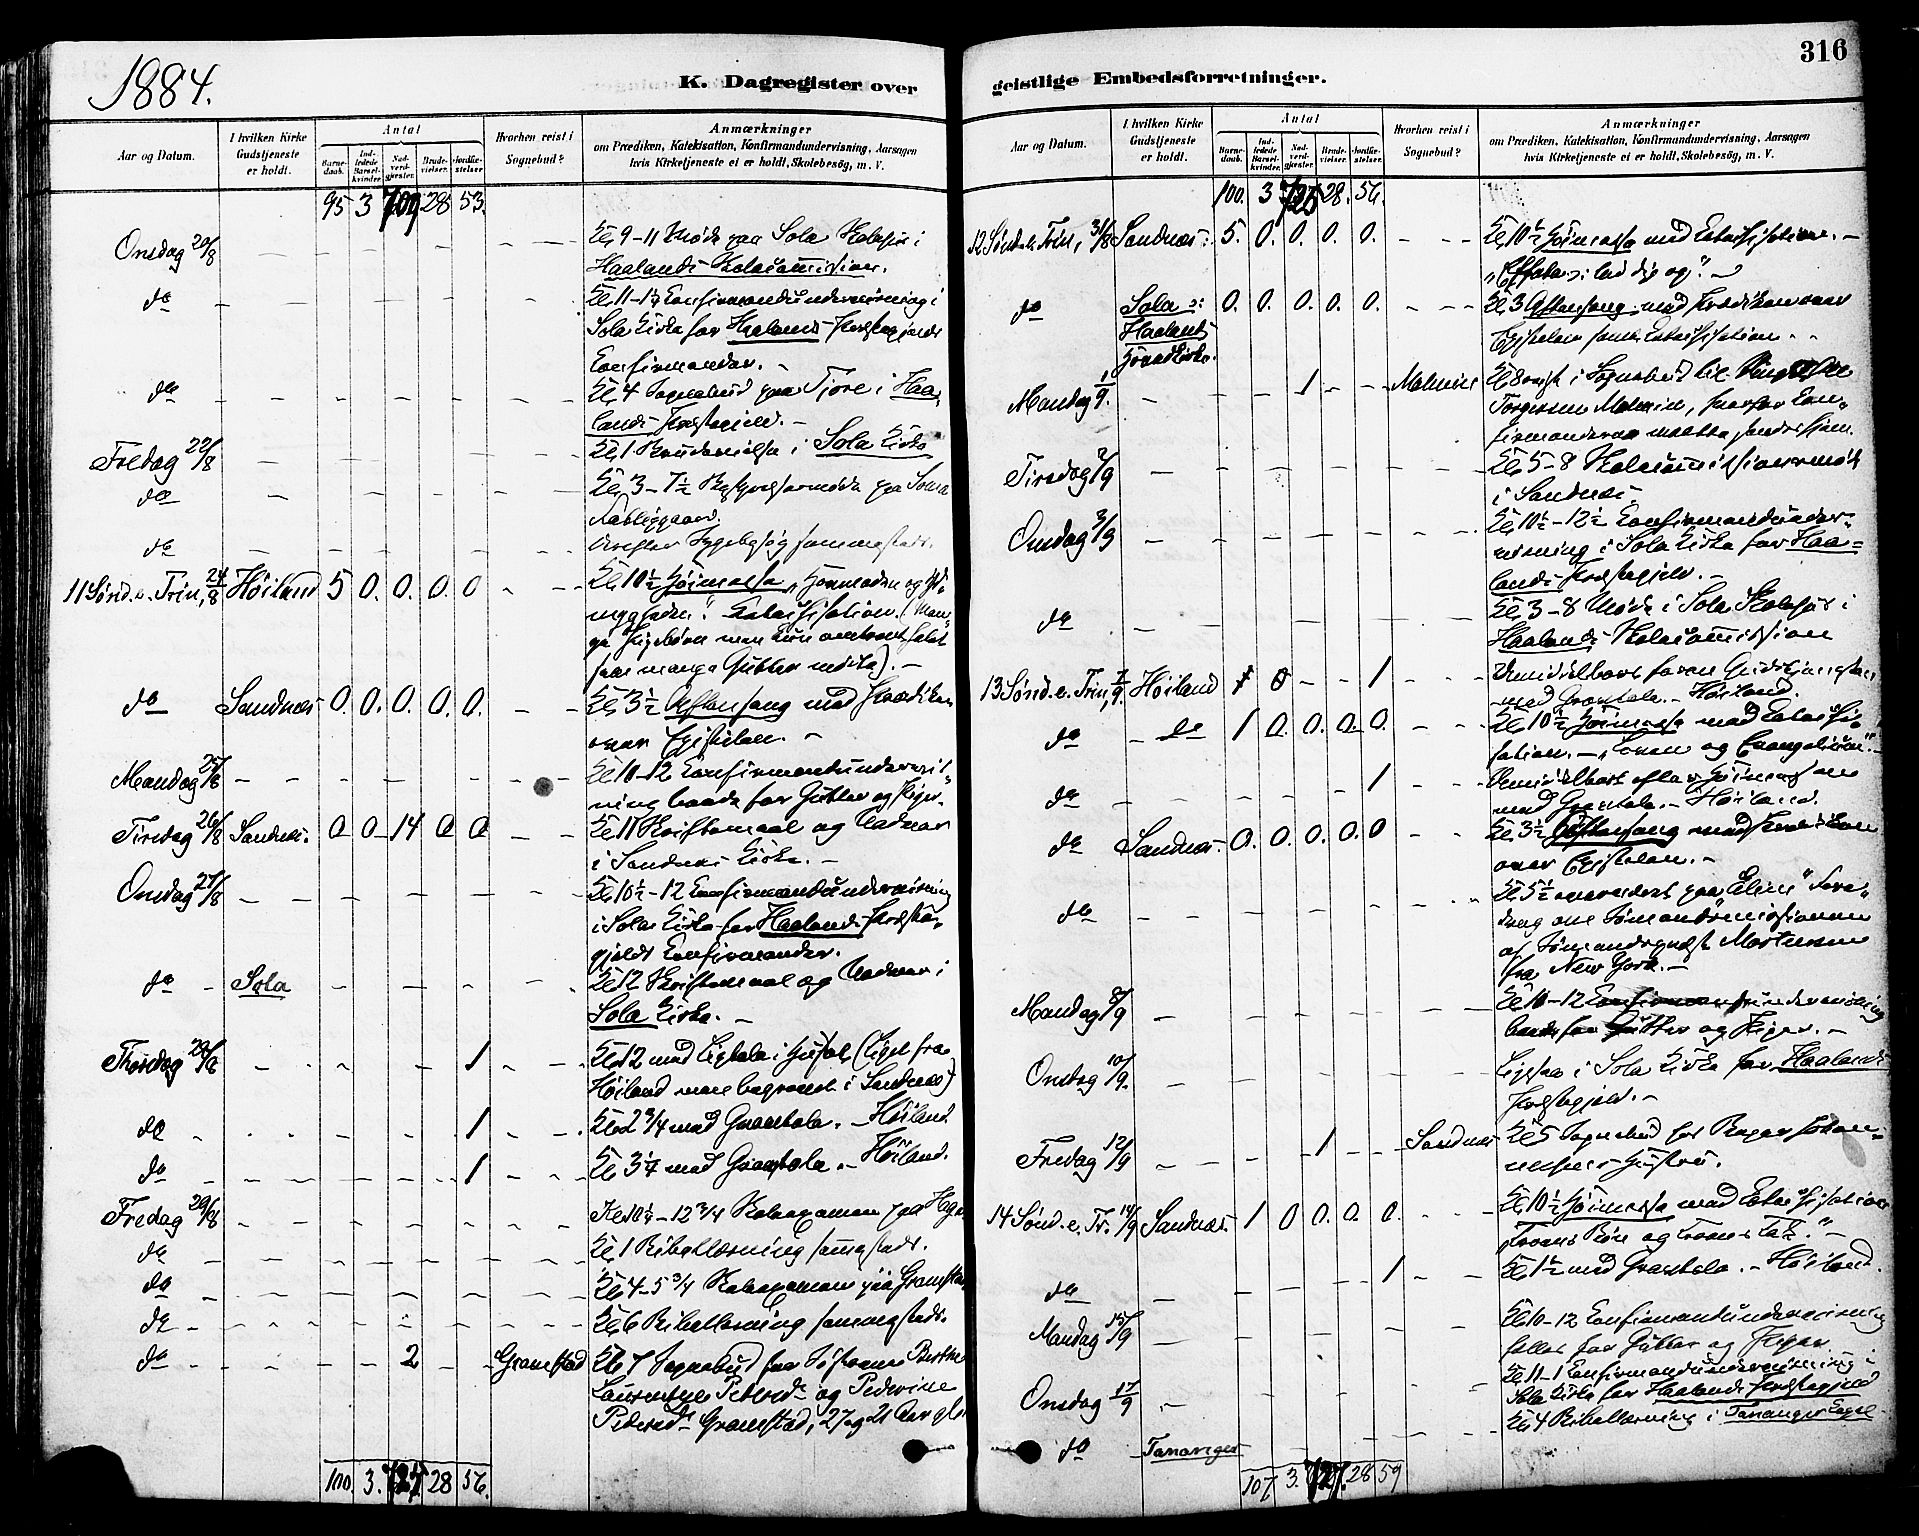 1884.
K. Dagregister over
Aar og Datum.
I hvilken Kirke Gudstjeneste er holdt.
Antal
Barnedaab.
Indledede Barselkvinder.
Nadverdgjester.
Brudevielser.
Jordfæstelser.
Hvorhen reist i Sognebud?
Anmærkninger
om Prædiken, Katekisation, Konfirmandundervisning, Aarsagen
hvis Kirketjeneste ei er holdt, Skolebesøg, m. V.
95 3 709 28 53.
Onsdag 20/8 Kl 9-11 Møde paa Sola Skolehus i
Haalands Skolecommission.
do Kl 11-1 Confirmandundervisning i
Sola Kirke for Haalands Præstegjelds
Confirmander.
do Kl 4 Sognebud paa Tjore i Haa-
lands Præstegjeld.
Fredag 22/8 Kl 1 Brudevielse i Sola Kirke
do Kl 3-7½
do Sygebesøg sammesteds.
11 Sønd. e. Trin, 24/8 Høiland 5 0. 0. 0. 0 Kl 10½ Høimesse
Katechisation.
do Sandnæs 0. 0. 0. 0. 0. Kl 3½ Aftensang med Prædiken
over Epistelen.
Mandag 25/8 Kl 10-12 Confirmandundervis-
ning baade for Gutter og Piger.
Tirsdag 26/8 Sandnæs. 0 0 14 0 0 Kl 11 Skriftemaal og Nadver
i Sandnæs Kirke.
Onsdag 27/8 Kl 10½-12 Confirmandundervisning
i Sola Kirke for Haalands Præste-
gjelds Confirmander.
do Sola Kl 12 Skriftemaal og Nadver i
Sola Kirke.
Thorsdag 28/8 1 Kl 12 med Ligtale i Huset (Liget fra
Høiland men begravet i Sandnæs)
do 1 Kl 2 3/4 med Gravtale. Høiland
do 1 Kl 3 med Gravtale. Høiland.
Fredag 29/8 Kl 10 - 12 3/4 Skoleexamen paa
do Kl 1 Bibellæsning sammesteds.
do Kl 4-5 3/4 Skoleexamen paa Gramstad
do Kl 6 Bibellæsning sammesteds.
do 2 Gramstad Kl 7 Sognebud for Søstrene Berthe
Laurentze Pedersdr og Pederine
Pedersdr Gramstad, 27 og 21 Aar gle
100. 3. 725 28 56.
316
geistlige Embedsforretninger.
Aar og Datum.
I hvilken Kirke Gudstjeneste er holdt.
Antal
Barnedaab.
Indledede Barselkvinder.
Nadverdgjester.
Brudevielser.
Jordfæstelser.
Hvorhen reist i Sognebud?
Anmærkninger
om Prædiken, Katekisation, Konfirmandundervisning, Aarsagen
hvis Kirketjeneste ei er holdt, Skolebesøg, m. V.
100. 3 725 28. 56.
12 Sønd. e. Trin, 31/8 Sandnæs. 5. 0. 0. 0. 0. Kl 10½ Høimesse med Katechisation.
do Sola 0. 0. 0. 0. 0. Kl 3 Aftensang med Prædiken over
Haalands Epistelen samt Katechisation.
Hovedkirke.
Mandag 1/9. 1 Malmin Kl 8 reist i Sognebud til
Torgersen Malmin,
Tirsdag 2/9 Kl 5-8 Skolecommissionsmøde
i Sandnæs.
Onsdag 3/9 Kl 10½-12½ Confirmandunder-
visning i Sola Kirke for Haa-
lands Præstegjeld.
do Kl 3-8 Møde i Sola Skolehus i
Haalands Skolecommission
13 Sønd. e. Trin, 7/9. Høiland 1 Umiddelbart foran Gudstjenesten
med Gravtale. Høiland.
do do 1 0. 0. 0. 0. Kl 10½ Høimesse med Katechi-
sation. "Loven og Evangelium".
do 1 Umiddelbart efter Høimessen
med Gravtale. Høiland.
do Sandnæs. 0. 0. 0. 0. 0 Kl 3½ Aftensang med Prædiken
over Epistelen.
do Kl 5½ overværet paa "Elim" Fore-
drag om Sømandsmissionen
af Sømandspræst Mortensen
fra New York.
Mandag 8/9 Kl 10-12 Confirmandundervisning
baade for Gutter og Piger.
Onsdag 10/9. Ligesaa i Sola Kirke for Haalands
Præstegjeld.
Fredag 12/9 1 Sandnæs Kl 5 Sognebud for
14 Sønd. e. Tr. 14/9 Sandnæs. 1 0 0. 0. 0. Kl 10½ Høimesse med Katechisation
do 1 Kl 1½ med Gravtale. Høiland.
Mandag 15/9 Kl 10-12 Confirmandundervisning
fælles for Gutter og Piger.
Onsdag 17/9 Kl 11-1 Confirmandundervisning i
Sola Kirke for Haalands Præstegjeld
do Tananger Kl 4 Bibellæsning i Tananger Capel
107. 3. 727. 28 59